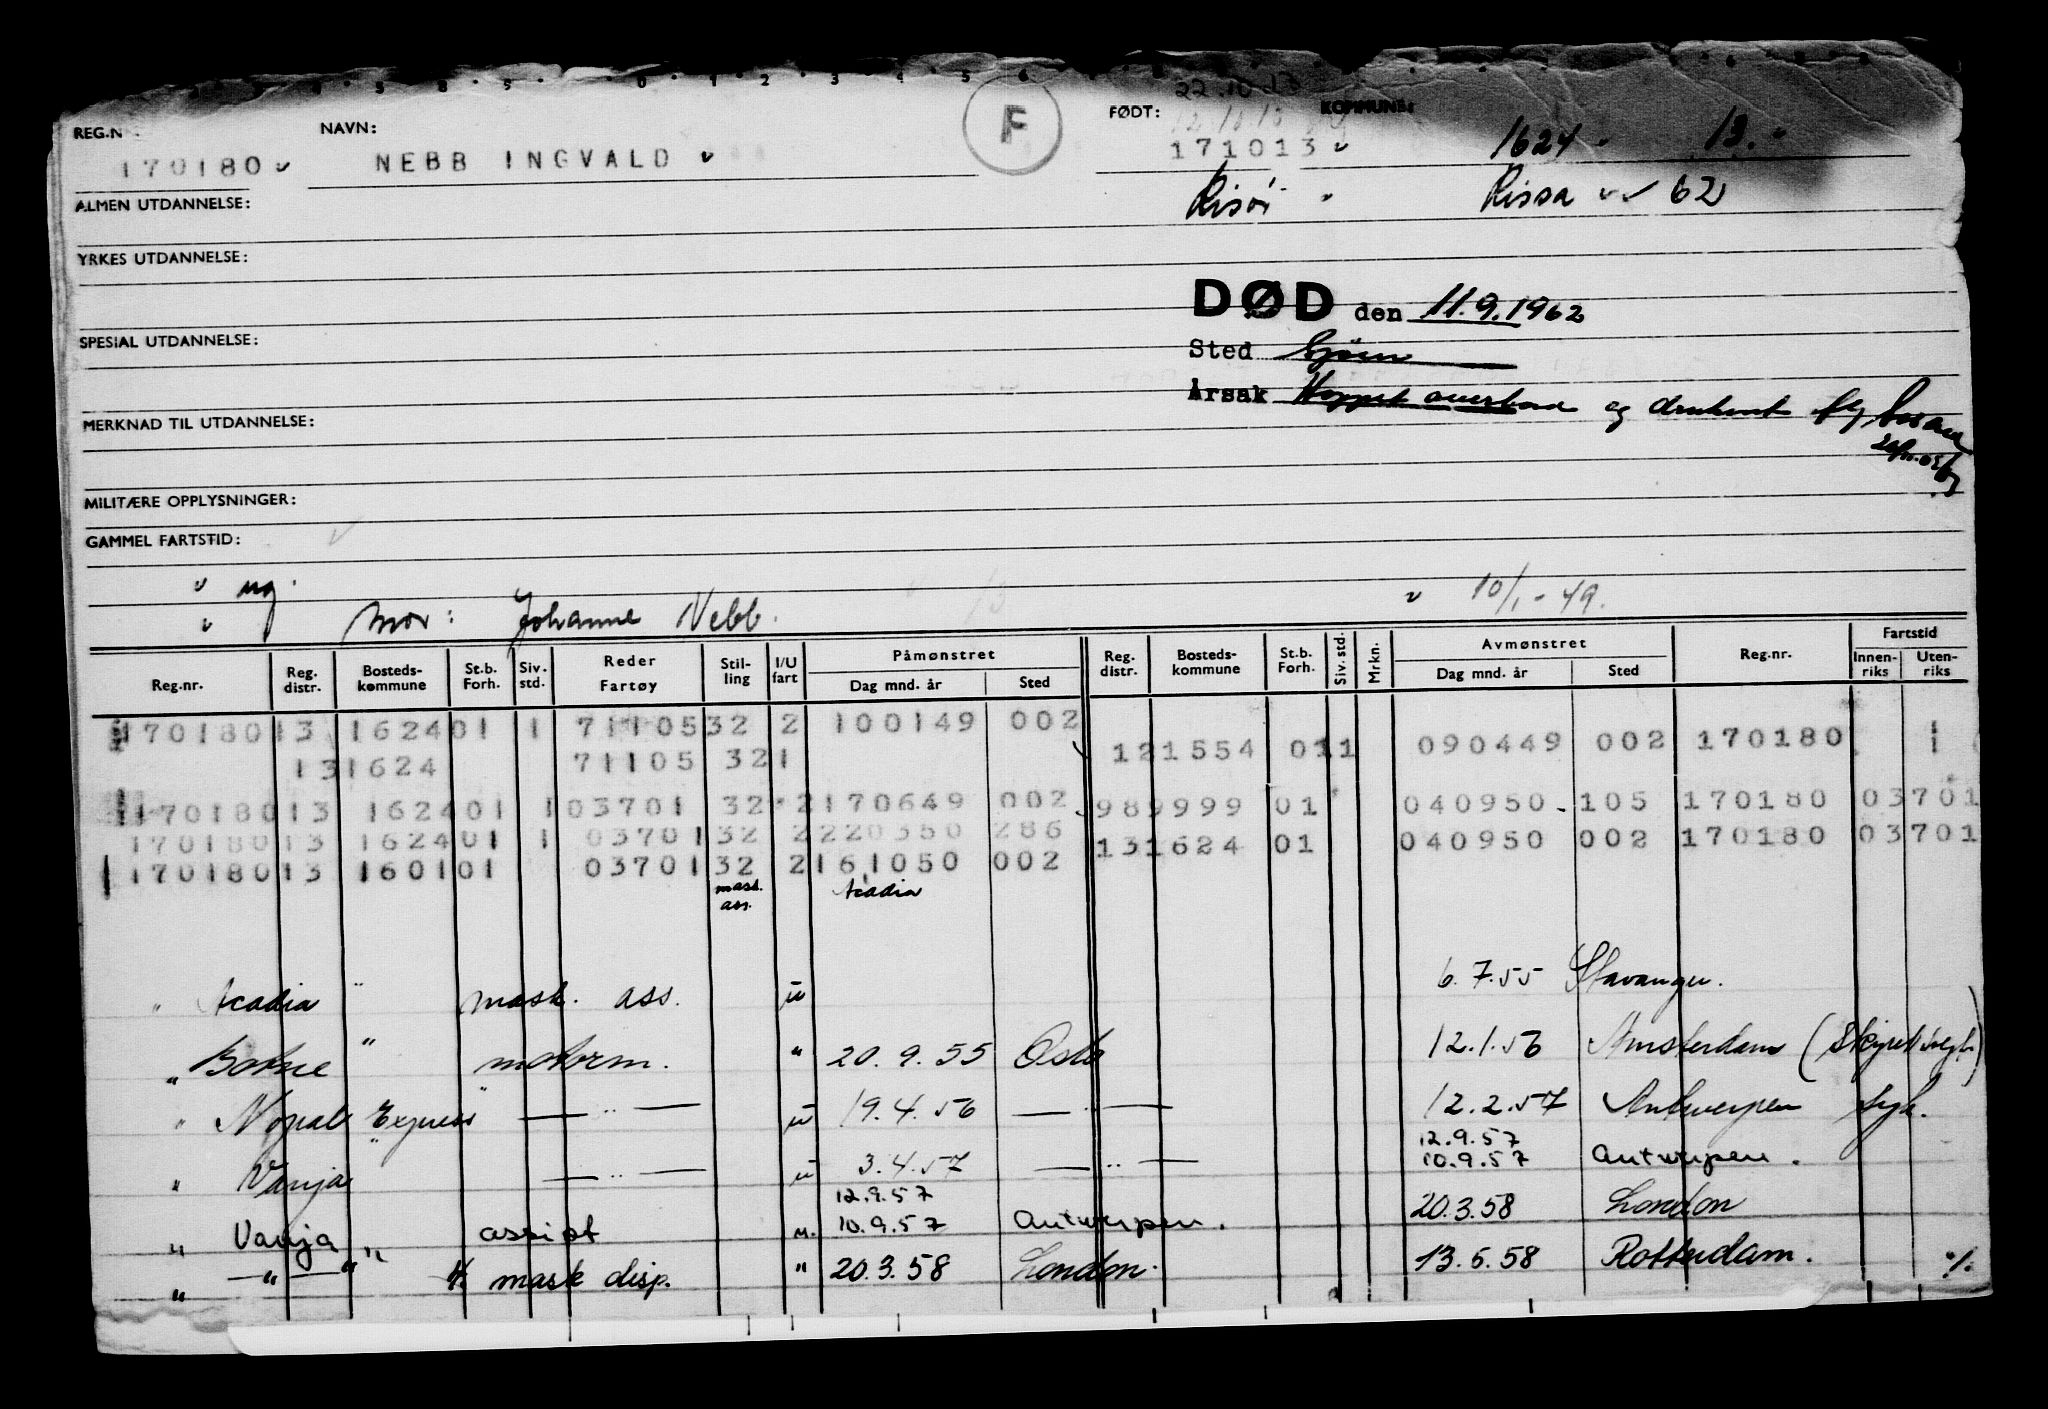 22.10.13
REG.N
NAVN:
F
FØDT:
KOMMUNE:
170180 NEBB INGVALD 171013 1624 13.
ALMEN UTDANNELSE:
Risör Rissa 62
YRKES UTDANNELSE:
DØD den 11.9.1962
SPESIAL UTDANNELSE:
Sted
Årsak Hoppet overbord og druknet
MERKNAD TIL UTDANNELSE:
MILITÆRE OPPLYSNINGER:
GAMMEL FARTSTID:
ug. 10/1-49.
Mor: Johanne Nebb.
Reg.nr. Reg. distr. Bosteds- kommune St.b. Forh. Siv. std. Reder Fartøy Stil- ling I/U fart Påmønstret Dag mnd. år Sted Reg. distr. Bosteds- kommune St.b. Forh. Siv. std. Mrkn. Avmønstret Dag mnd. år Sted Reg.nr. Fartstid Innen- riks Uten- riks
170180 13 1624 01 1 71105 32 2 100149 002
13 1624 71105 32 1 12 1554 01 1 090449 002 170180 1
170180 13 1624 01 1 03701 32 2 170649 002 98 9999 01 040950 105 170180 03701
170180 13 1624 01 1 03701 32 2 220350 286 13 1624 01 040950 002 170180 03701
170180 13 1601 01 03701 32 2 161050 002
mask. ass. Acadia
" Acadia " mask. ass. u 6.7.55 Stavanger.
" " motorm. " 20.9.55 Oslo 12.1.56 Amsterdam
" Nopal Express " — " — u 19.4.56 — " — 12.2.57 Antwerpen syk.
" Vanja — " — u 3.4.57 — " — 12.9.57 10.9.57 Antwerpen.
" Vanja " assist u. 12.9.57 10.9.57 Antwerpen. 20.3.58 London
" — " — " mask disp. " 20.3.58 London. 13.6.58 Rotterdam. %